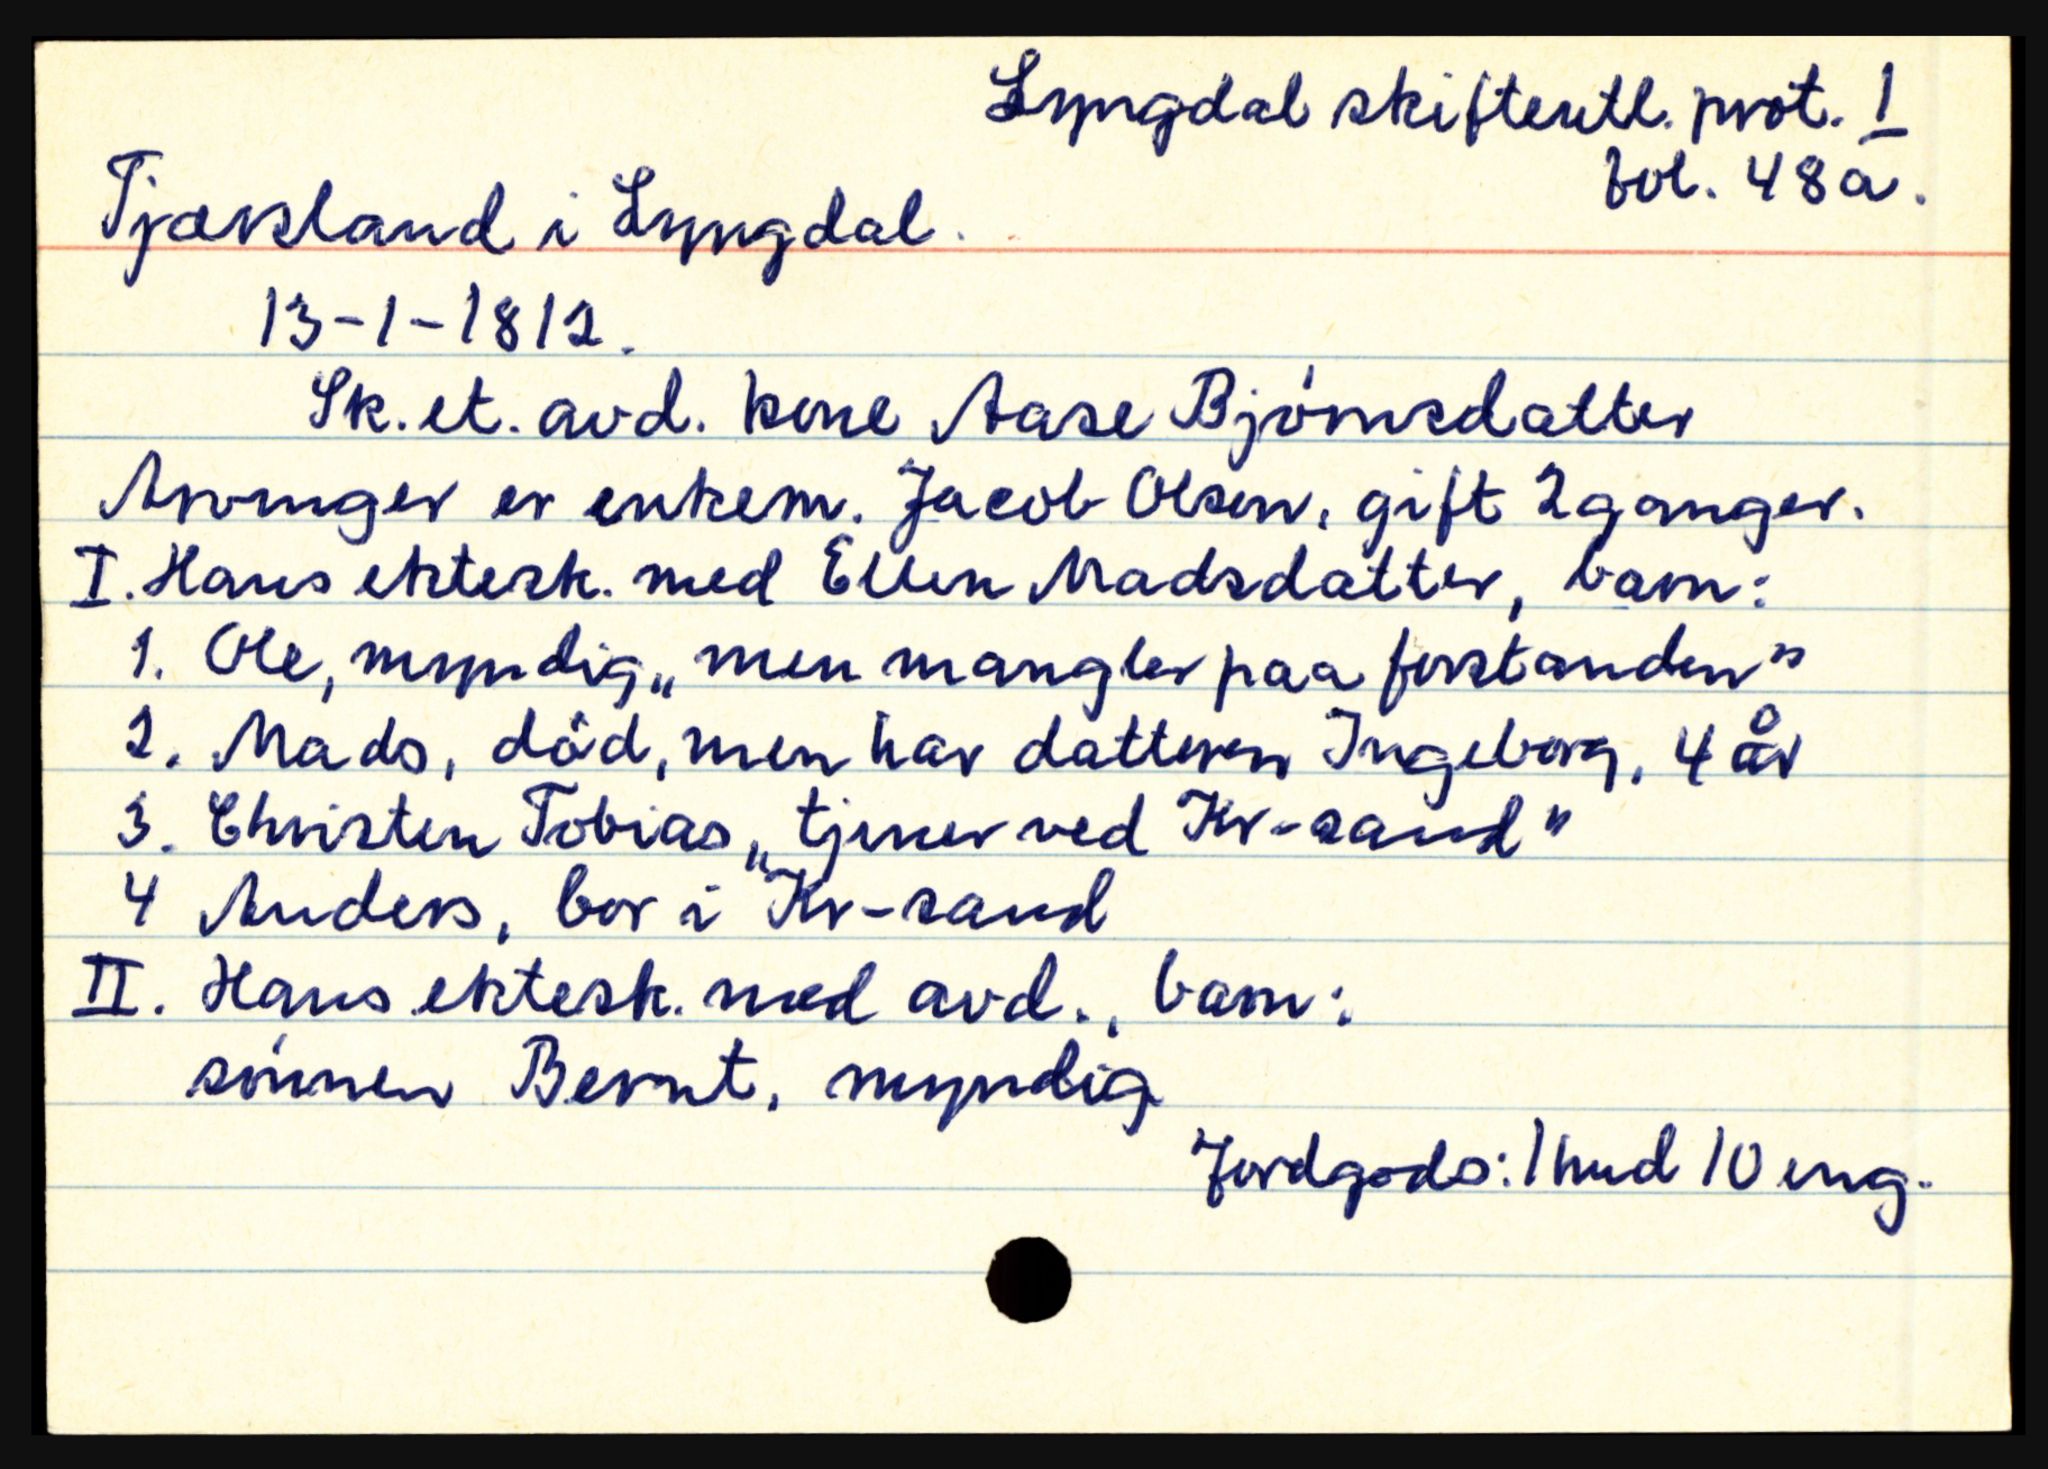 Lyngdal skifteutl. prot. 1
fol. 48a.
Tjærsland i Lyngdal.
13-1-1812.
Sk. et. avd. kone Aase Bjórnsdatter
Arvinger er enkem. Jacob Olsen, gift 2 ganger.
I. Hans ektesk. med Ellen Madsdatter, barn:
1. Ole, myndig „men mangler paa forstanden"
2. Mads, död, men har datteren Ingeborg, 4 år
3. Christen Tobias „tjener ved Kr-sand"
4 Anders, bor i Kr-sand
II. Hans ektesk. med avd., barn:
sónnen Bernt, myndig
Jordgods: 1 hud 10 eng.